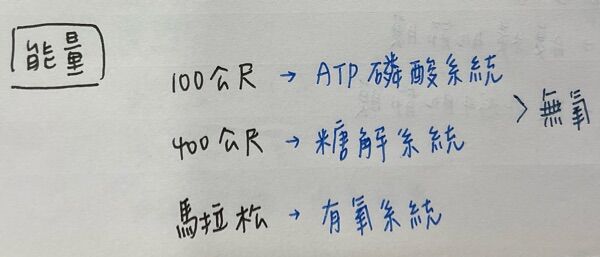 能量
100公尺 → ATP磷酸系統
400公尺 → 糖解系統
> 無氧
馬拉松 → 有氧系統